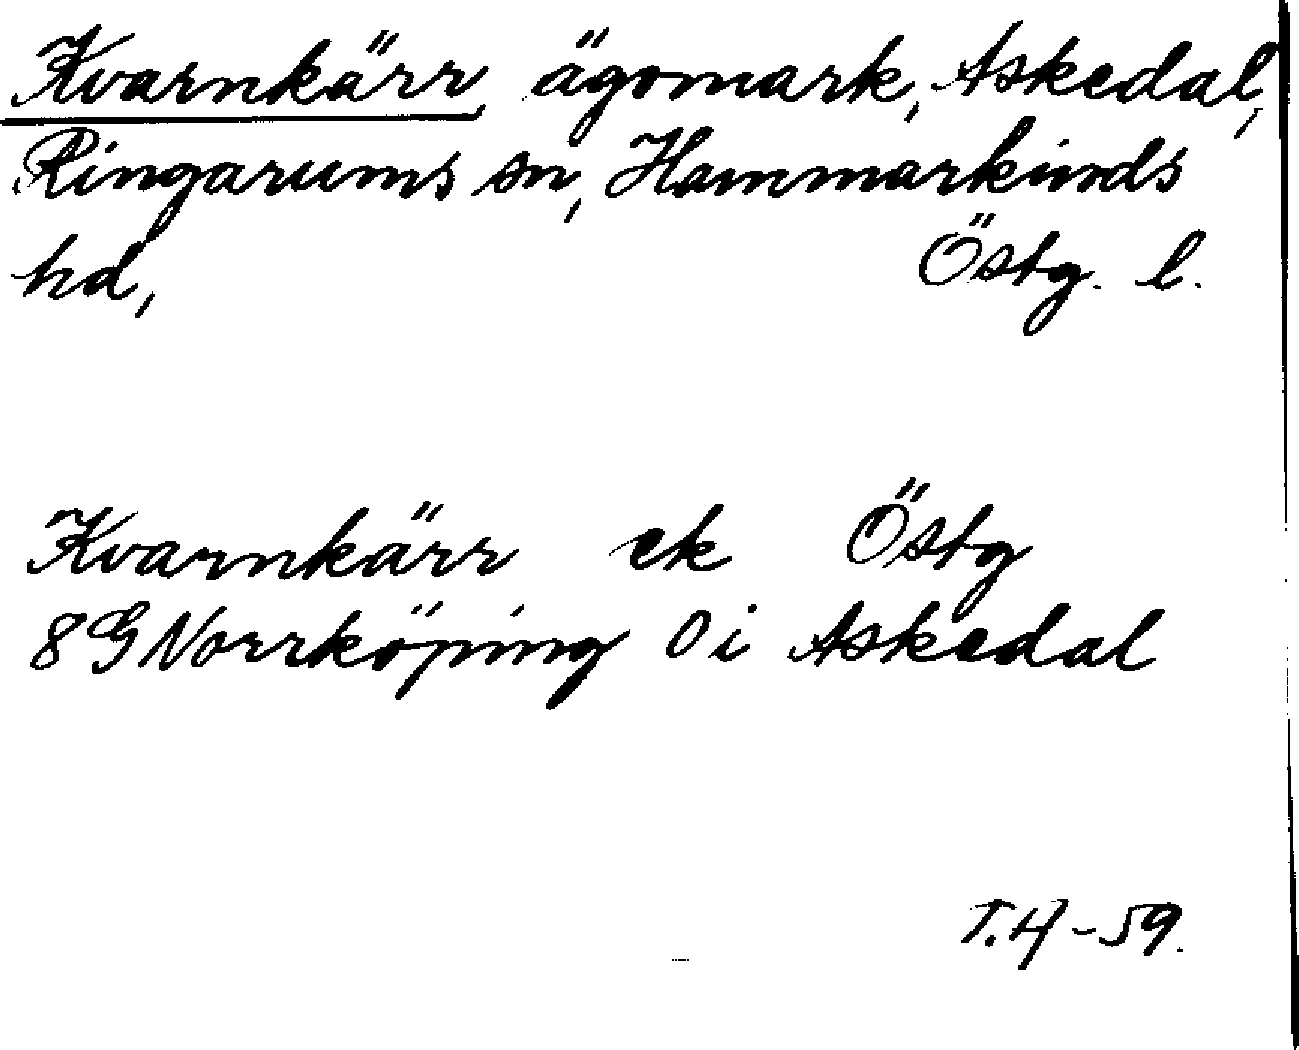 Kvarnkärr, ägomark, Askedal,
Ringarums sn, Hammarkinds
hd, Östg. l.
Kvarnkärr ek Östg
8G Norrköping O i Askedal
T.H-59.